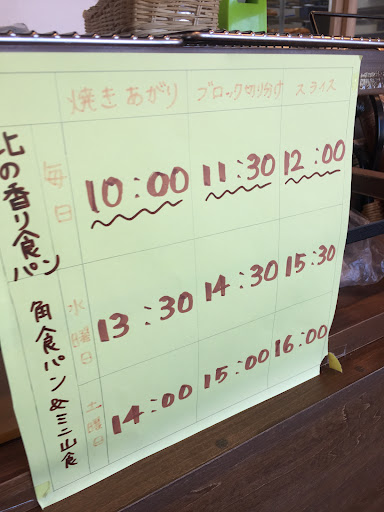 焼きあがり ブロック切り分け スライス
北の香り食パン 毎日 10:00 11:30 12:00
角食パン&ミニ山食 水曜日 13:30 14:30 15:30
土曜日 14:00 15:00 16:00